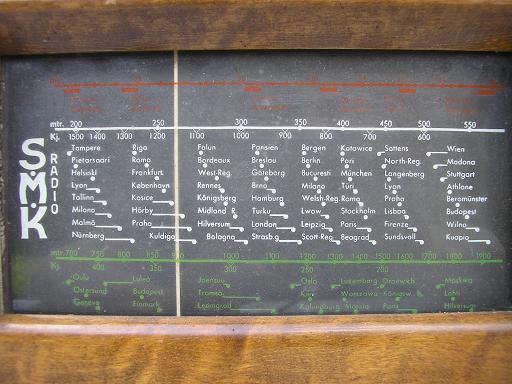 S.M.K
RADIO
mtr. 200 250 300 350 400 450 500 550
Kj. 1500 1400 1300 1200 1100 1000 900 800 700 600
Tampere Riga Falun Parisien Bergen Katowice Sottens Wien
Pietarsaari Roma Bordeaux Breslau Berlin Pori North-Reg. Madona
Helsinki Frankfurt West-Reg. Göteborg Bucuresti München Langenberg Stuttgart
Lyon København Rennes Brno Milano Türi Lyon Athlone
Tallinn Kosice Königsberg Hamburg Welsh-Reg. Roma Praha Beromünster
Milano Hörby Midland R. Turku Lwow Stockholm Lisboa Budapest
Malmö Praha Hilversum London Leipzig Paris Firenze Wilno
Nürnberg Kuldiga Bologna Strasb.g Scott-Reg. Beograd Sundsvall Kuopio
mtr. 700 750 800 850 900 1000 1100 1200 1300 1400 1500 1600 1700 1800 1900
Kj. 400 350 300 250 200
Oulu Luleå Joensuu Oslo Luxemburg Droitwich Moskwa
Östersund Budapest Tromsö Kiev Warszawa Königsw. Lahti
Geneve Finmark Leningrad Kalundborg Motala Paris Hilversum